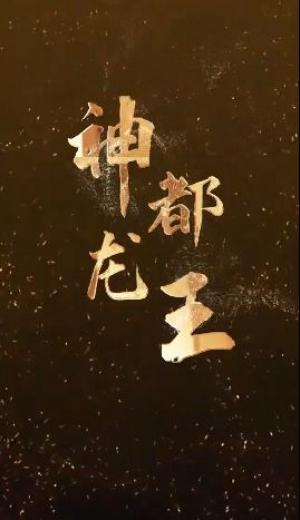 神都龙王